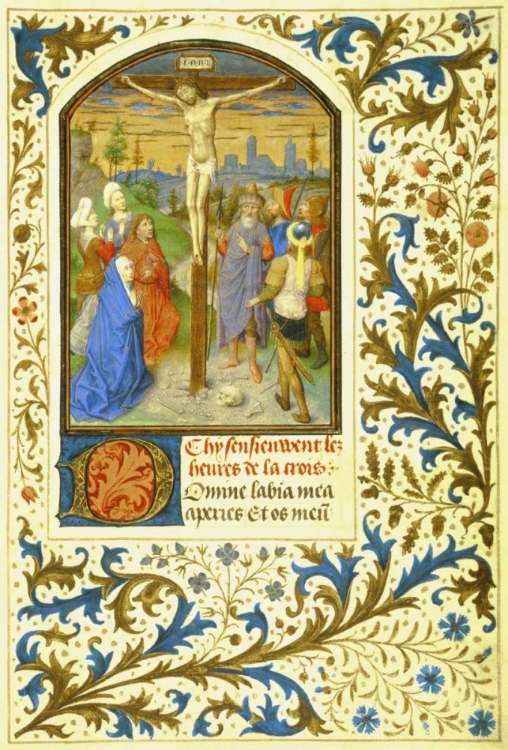 I·N·R·I
Chy sensieuwent les
heures de la crois
Domine labia mea
aperies Et os meū